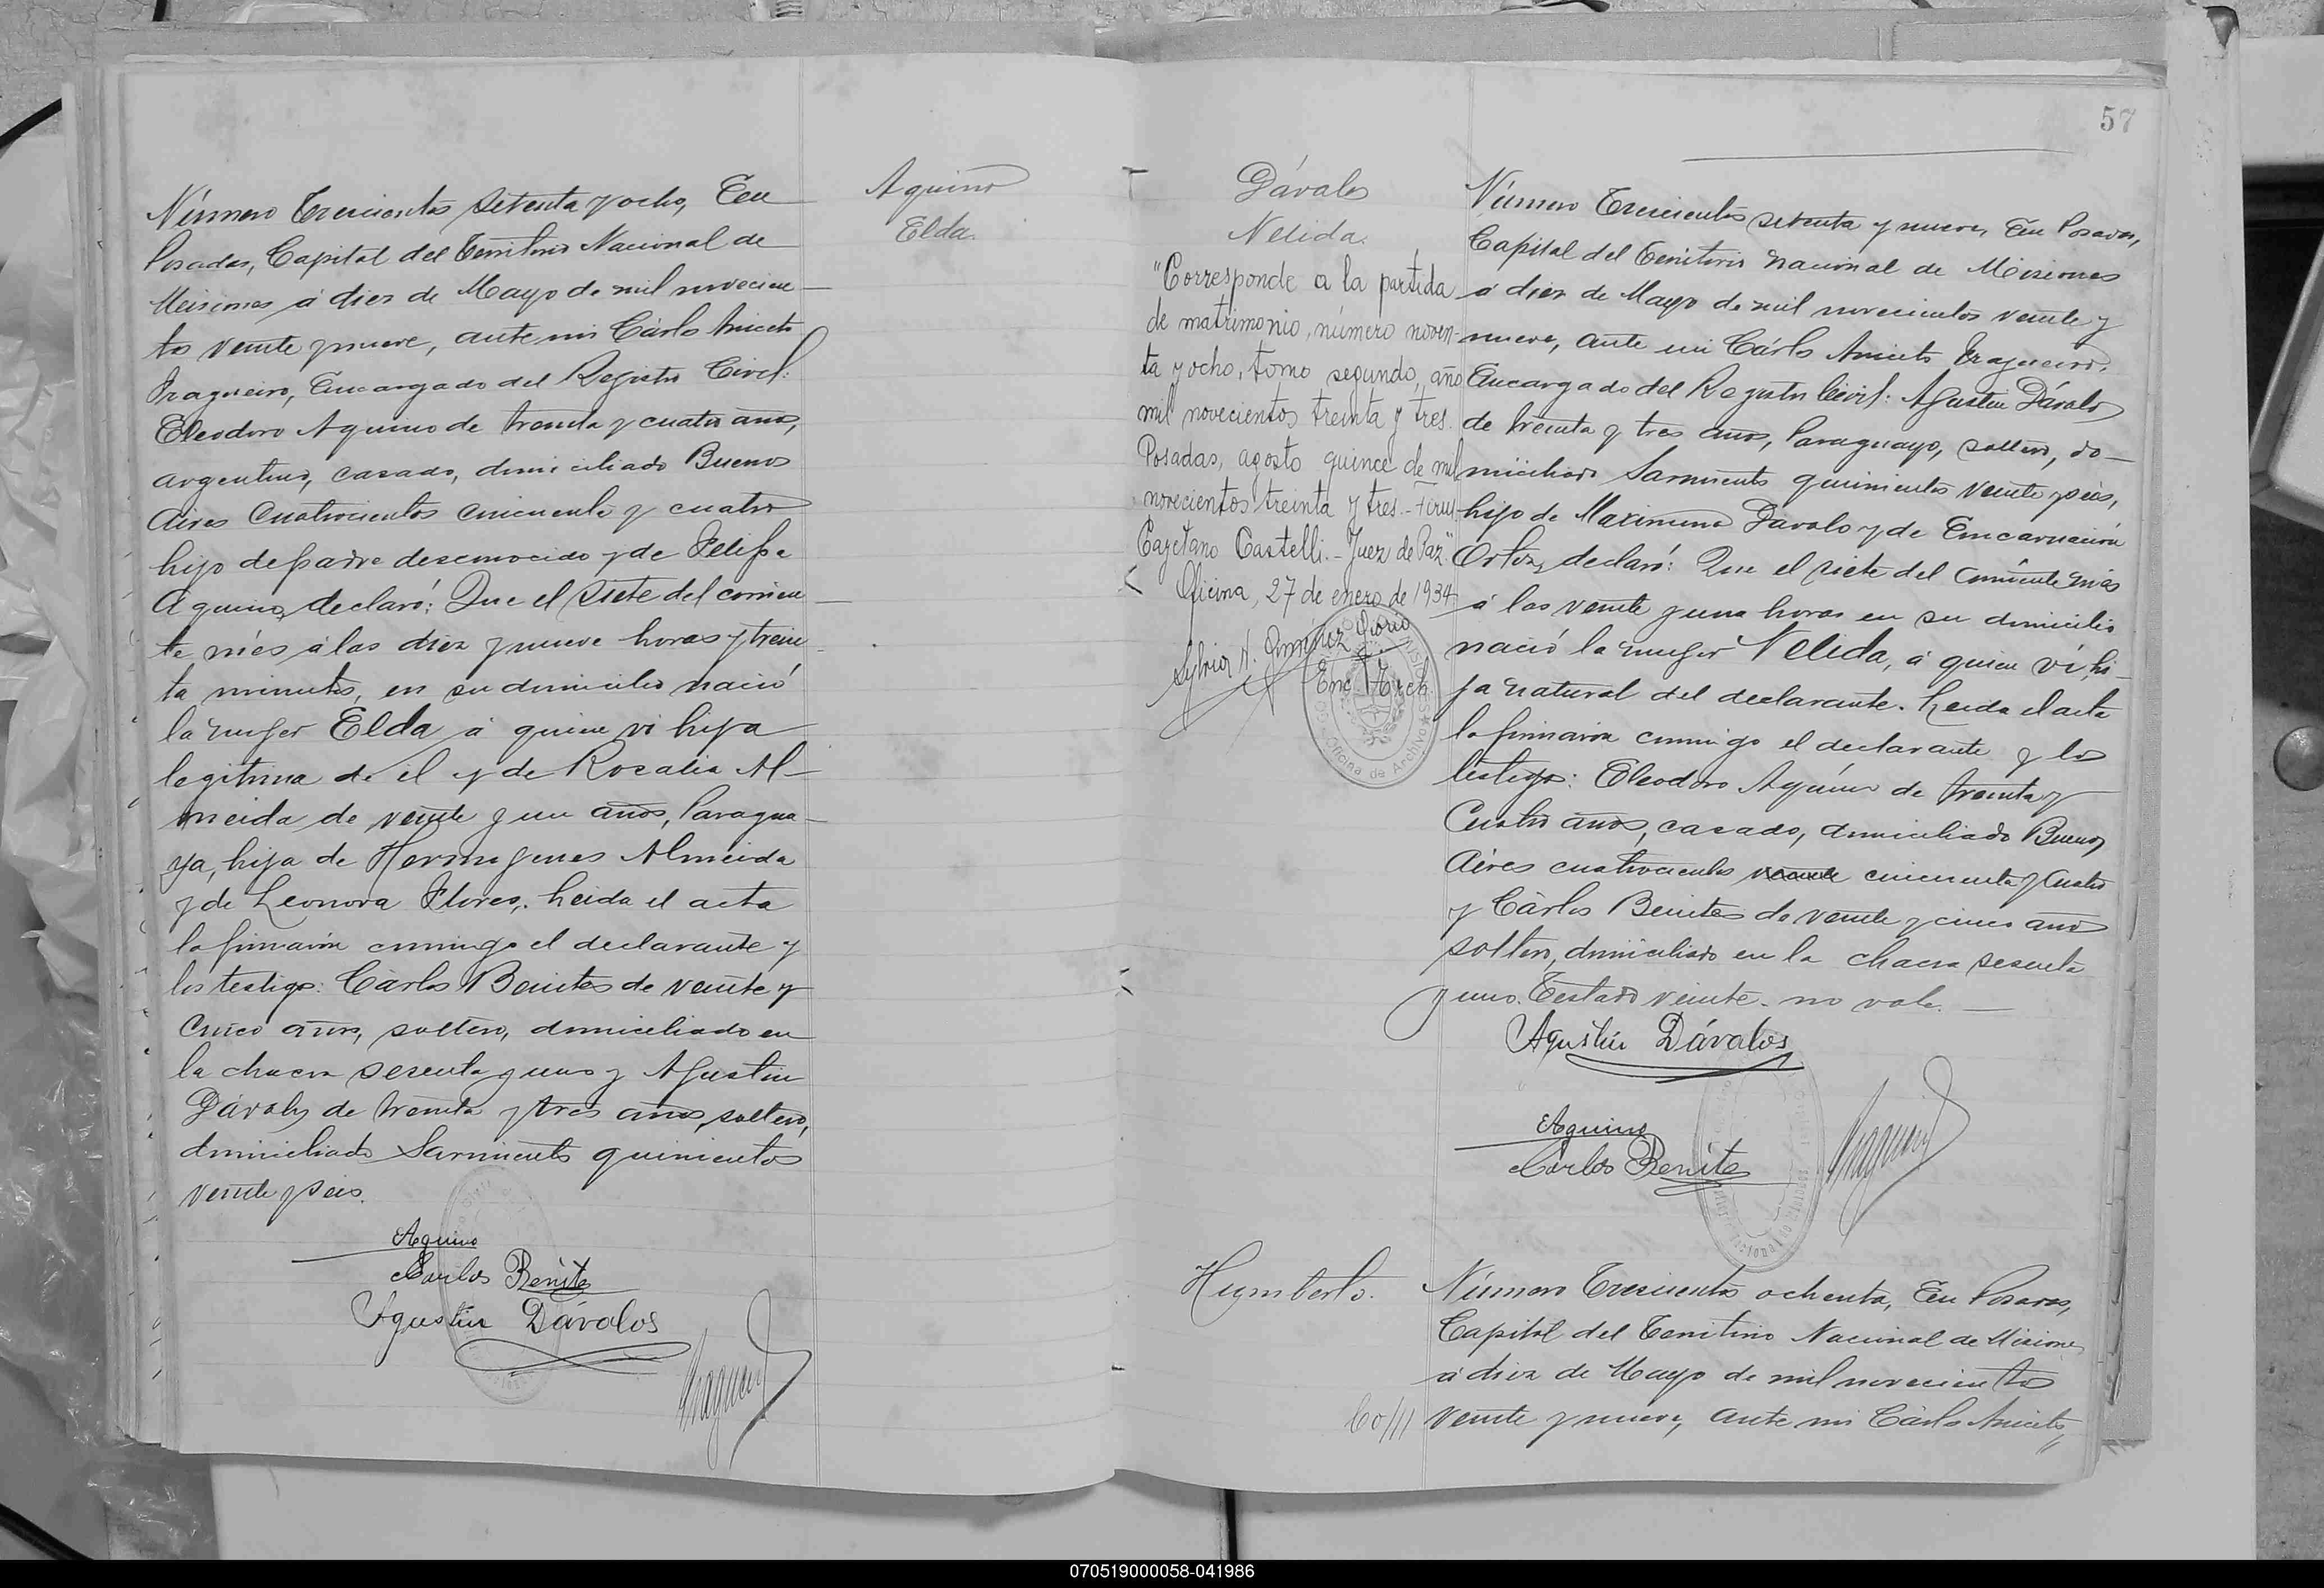 Número Trescientos setenta y ocho, En
Posadas, Capital del Territorio Nacional de
Misiones á diez de Mayo de mil novecien
tos veinte y nueve, ante mi Cárlos Aniceto
Fragueiro, Encargado del Registro Civil:
Eleodoro Aquino de treinta y cuatro años,
argentino, casado, domiciliado Buenos
Aires cuatrocientos cincuenta y cuatro
hijo de padre desconocido y de Felipa
Aquino, declaró: Que el siete del corrien
te més á las diez y nueve horas y trein
ta minutos, en su domicilio nació
la mujer Elda á quien vi hija
legitima de él y de Rosalia Al-
meida de veinte y un años, Paragua-
ya, hija de Hermogenes Almeida
y de Leonora Flores, Leida el acta
la firmaron conmigo el declarante y
los testigos: Cárlos Benites de veinte y
cinco años, soltero, domiciliado en
la chacra sesenta y uno y Agustin
Dávalos de treinta y tres años, soltero,
domiciliado Sarmiento quinientos
veinte y seis.
Aquino
Carlos Benites
Agustín Dávalos
Fragueiro
Aquino
Elda.
57
Dávalos
Nelida.
"Corresponde a la partida
de matrimonio, número noven-
ta y ocho, tomo segundo, año
mil novecientos treinta y tres.
Posadas, agosto quince de mil
novecientos treinta y tres.-
Cayetano Castelli.- Juez de Paz."
Oficina, 27 de enero de 1934
Enc. Arch.
Oficina de Archivos
Número Trescientos setenta y nueve, En Posadas,
Capital del Territorio Nacional de Misiones
á diez de Mayo de mil novecientos veinte y
nueve, ante mi Cárlos Aniceto Fragueiro,
Encargado del Registro Civil: Agustin Dávalos
de treinta y tres años, Paraguayo, soltero, do-
miciliado Sarmiento quinientos veinte y seis,
hijo de Maximina Davalos y de Encarnación
Ortiz, declaró: Que el siete del corriente més
á las veinte y una horas en su domicilio
nació la mujer Nelida, á quien vi, hi-
ja natural del declarante. Leida el acta
la firmaron conmigo el declarante y los
testigos: Eleodoro Aquino de treinta y
cuatro años, casado, domiciliado Buenos
Aires cuatrocientos veinte cincuenta y cuatro
y Cárlos Benites de veinte y cinco años
soltero, domiciliado en la chacra sesenta
y uno. Testado veinte. no vale.
Agustín Dávalos
Aquino
Carlos Benites
Fragueiro
Humberto.
Número Trescientos ochenta, En Posadas,
Capital del Territorio Nacional de Misiones
á diez de Mayo de mil novecientos
veinte y nueve, ante mi Cárlos Aniceto
070519000058-041986